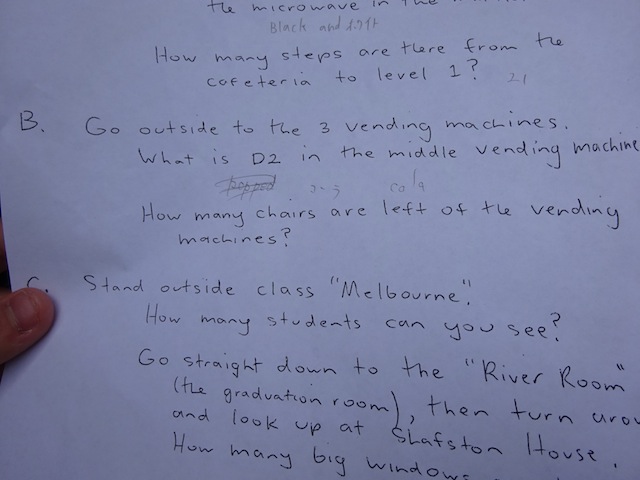 the microwave in the
Black and
How many steps are there from the
cafeteria to level 1? 21
B. Go outside to the 3 vending machines.
What is D2 in the middle vending machine
cola
How many chairs are left of the vending
machines?
C. Stand outside class "Melbourne".
How many students can you see?
Go straight down to the "River Room"
(the graduation room), then turn arou
and look up at Shafston House.
How many big windows